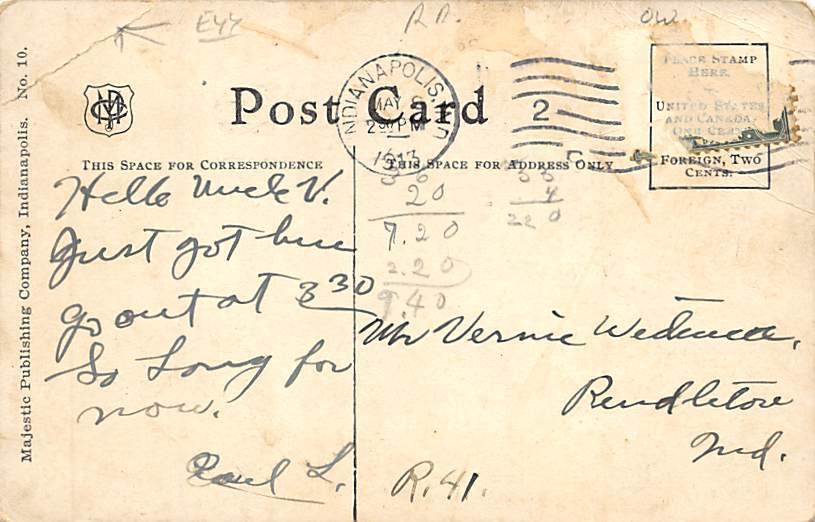 E44
R.D.
OW
Majestic Publishing Company, Indianapolis. No. 10.
Post Card
INDIANAPOLIS, IND
MAY
2 PM
1913
2
PLACE STAMP
HERE.
UNITED STATES
AND CANADA
ONE CENT
FOREIGN, TWO
CENTS.
THIS SPACE FOR CORRESPONDENCE
THIS SPACE FOR ADDRESS ONLY
Hello Uncle V.
Just got here
go out at 3 30
So Long for
now.
Paul L.
36
20
7.20
2.20
9.40
55
4
220
Mr Vernie
Pendleton
Ind.
R. 41.